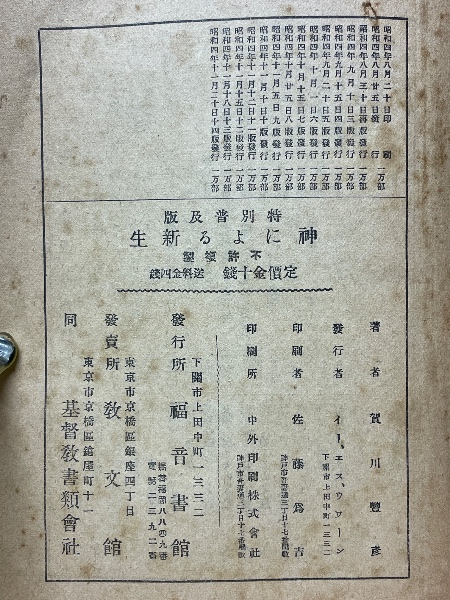 昭和四年八月二十日印刷
昭和四年八月廿五日發行 一万部
昭和四年八月三十日再版發行 一万部
昭和四年九月十日三版發行 一万部
昭和四年九月十五日四版發行 一万部
昭和四年九月二十日五版發行 一万部
昭和四年十月一日六版發行 一万部
昭和四年十月十五日七版發行 一万部
昭和四年十月廿五日八版發行 一万部
昭和四年十一月五日九版發行 一万部
昭和四年十一月十日十版發行 一万部
昭和四年十一月十二日十一版發行 一万部
昭和四年十一月十五日十二版發行 一万部
昭和四年十一月十八日十三版發行 一万部
昭和四年十一月二十日十四版發行 一万部
特別普及版
神による新生
不許複製
定價金十錢 送料金四錢
著者 賀川豐彦
發行者 イー、エス、ウアーン
下關市上田中町一三三二
印刷者 佐藤爲吉
印刷所 中外印刷株式會社
下關市上田中町一三三二
發行所 福音書館
東京市京橋區銀座四丁目
發賣所 敎文館
東京市京橋區鎗屋町十一
同 基督敎書類會社